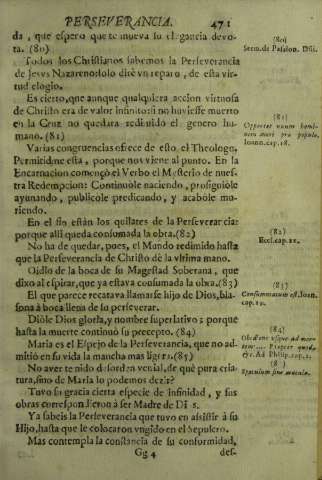 PERSEVERANCIA. 471
da, que espero que te mueva su elegancia devo-
ta. (80)
Todos los Christianos sabemos la Perseverancia
de Jesvs Nazareno: solo dirè vn reparo, de esta vir-
tud elogio.
Es cierto, que aunque qualquiera accion virtuosa
de Christo era de valor infinito: si no huviesse muerto
en la Cruz no quedara redimido el genero hu-
mano. (81)
Varias congruencias ofrece de esto el Theologo,
Permitidme esta, porque nos viene al punto. En la
Encarnacion començò el Verbo el Mysterio de nues-
tra Redempcion: Continuòle naciendo, prosiguiòle
ayunando, publicòle predicando, y acabòle mu-
riendo.
En el fin estàn los quilates de la Perseverancia:
porque alli queda consumada la obra. (82)
No ha de quedar, pues, el Mundo redimido hasta
que la Perseverancia de Christo dè la vltima mano.
Oidlo de la boca de su Magestad Soberana, que
dixo al espirar, que ya estava consumada la obra. (83)
El que parece recatava llamarse hijo de Dios, bla-
sona à boca llena de su perseverar.
Diòle Dios gloria, y nombre superlativo; porque
hasta la muerte continuò su precepto. (84)
Maria es el Espejo de la Perseverancia, que no ad-
mitiò en su vida la mancha mas ligera. (85)
No aver tenido desorden venial, de què pura cria-
tura, sino de Maria lo podemos dezir?
Tuvo su gracia cierta especie de infinidad, y sus
obras correspondieron à ser Madre de Dios.
Ya sabeis la Perseverancia que tuvo en assistir à su
Hijo, hasta que le colocaron vngido en el Sepulcro.
Mas contempla la constancia de su conformidad,
Gg 4 des-
(80)
Serm. de Passion. Dñi.
(81)
Oportet vnum homi-
nem mori pro populo,
Ioann. cap. 18.
(82)
Eccl. cap. 12.
(83)
Consummatum est. Ioan.
cap. 19.
(84)
Obediens vsque ad mor-
tem... Propter quod,
&c. Ad Philip. cap. 2.
(85)
Speculum sine macula.